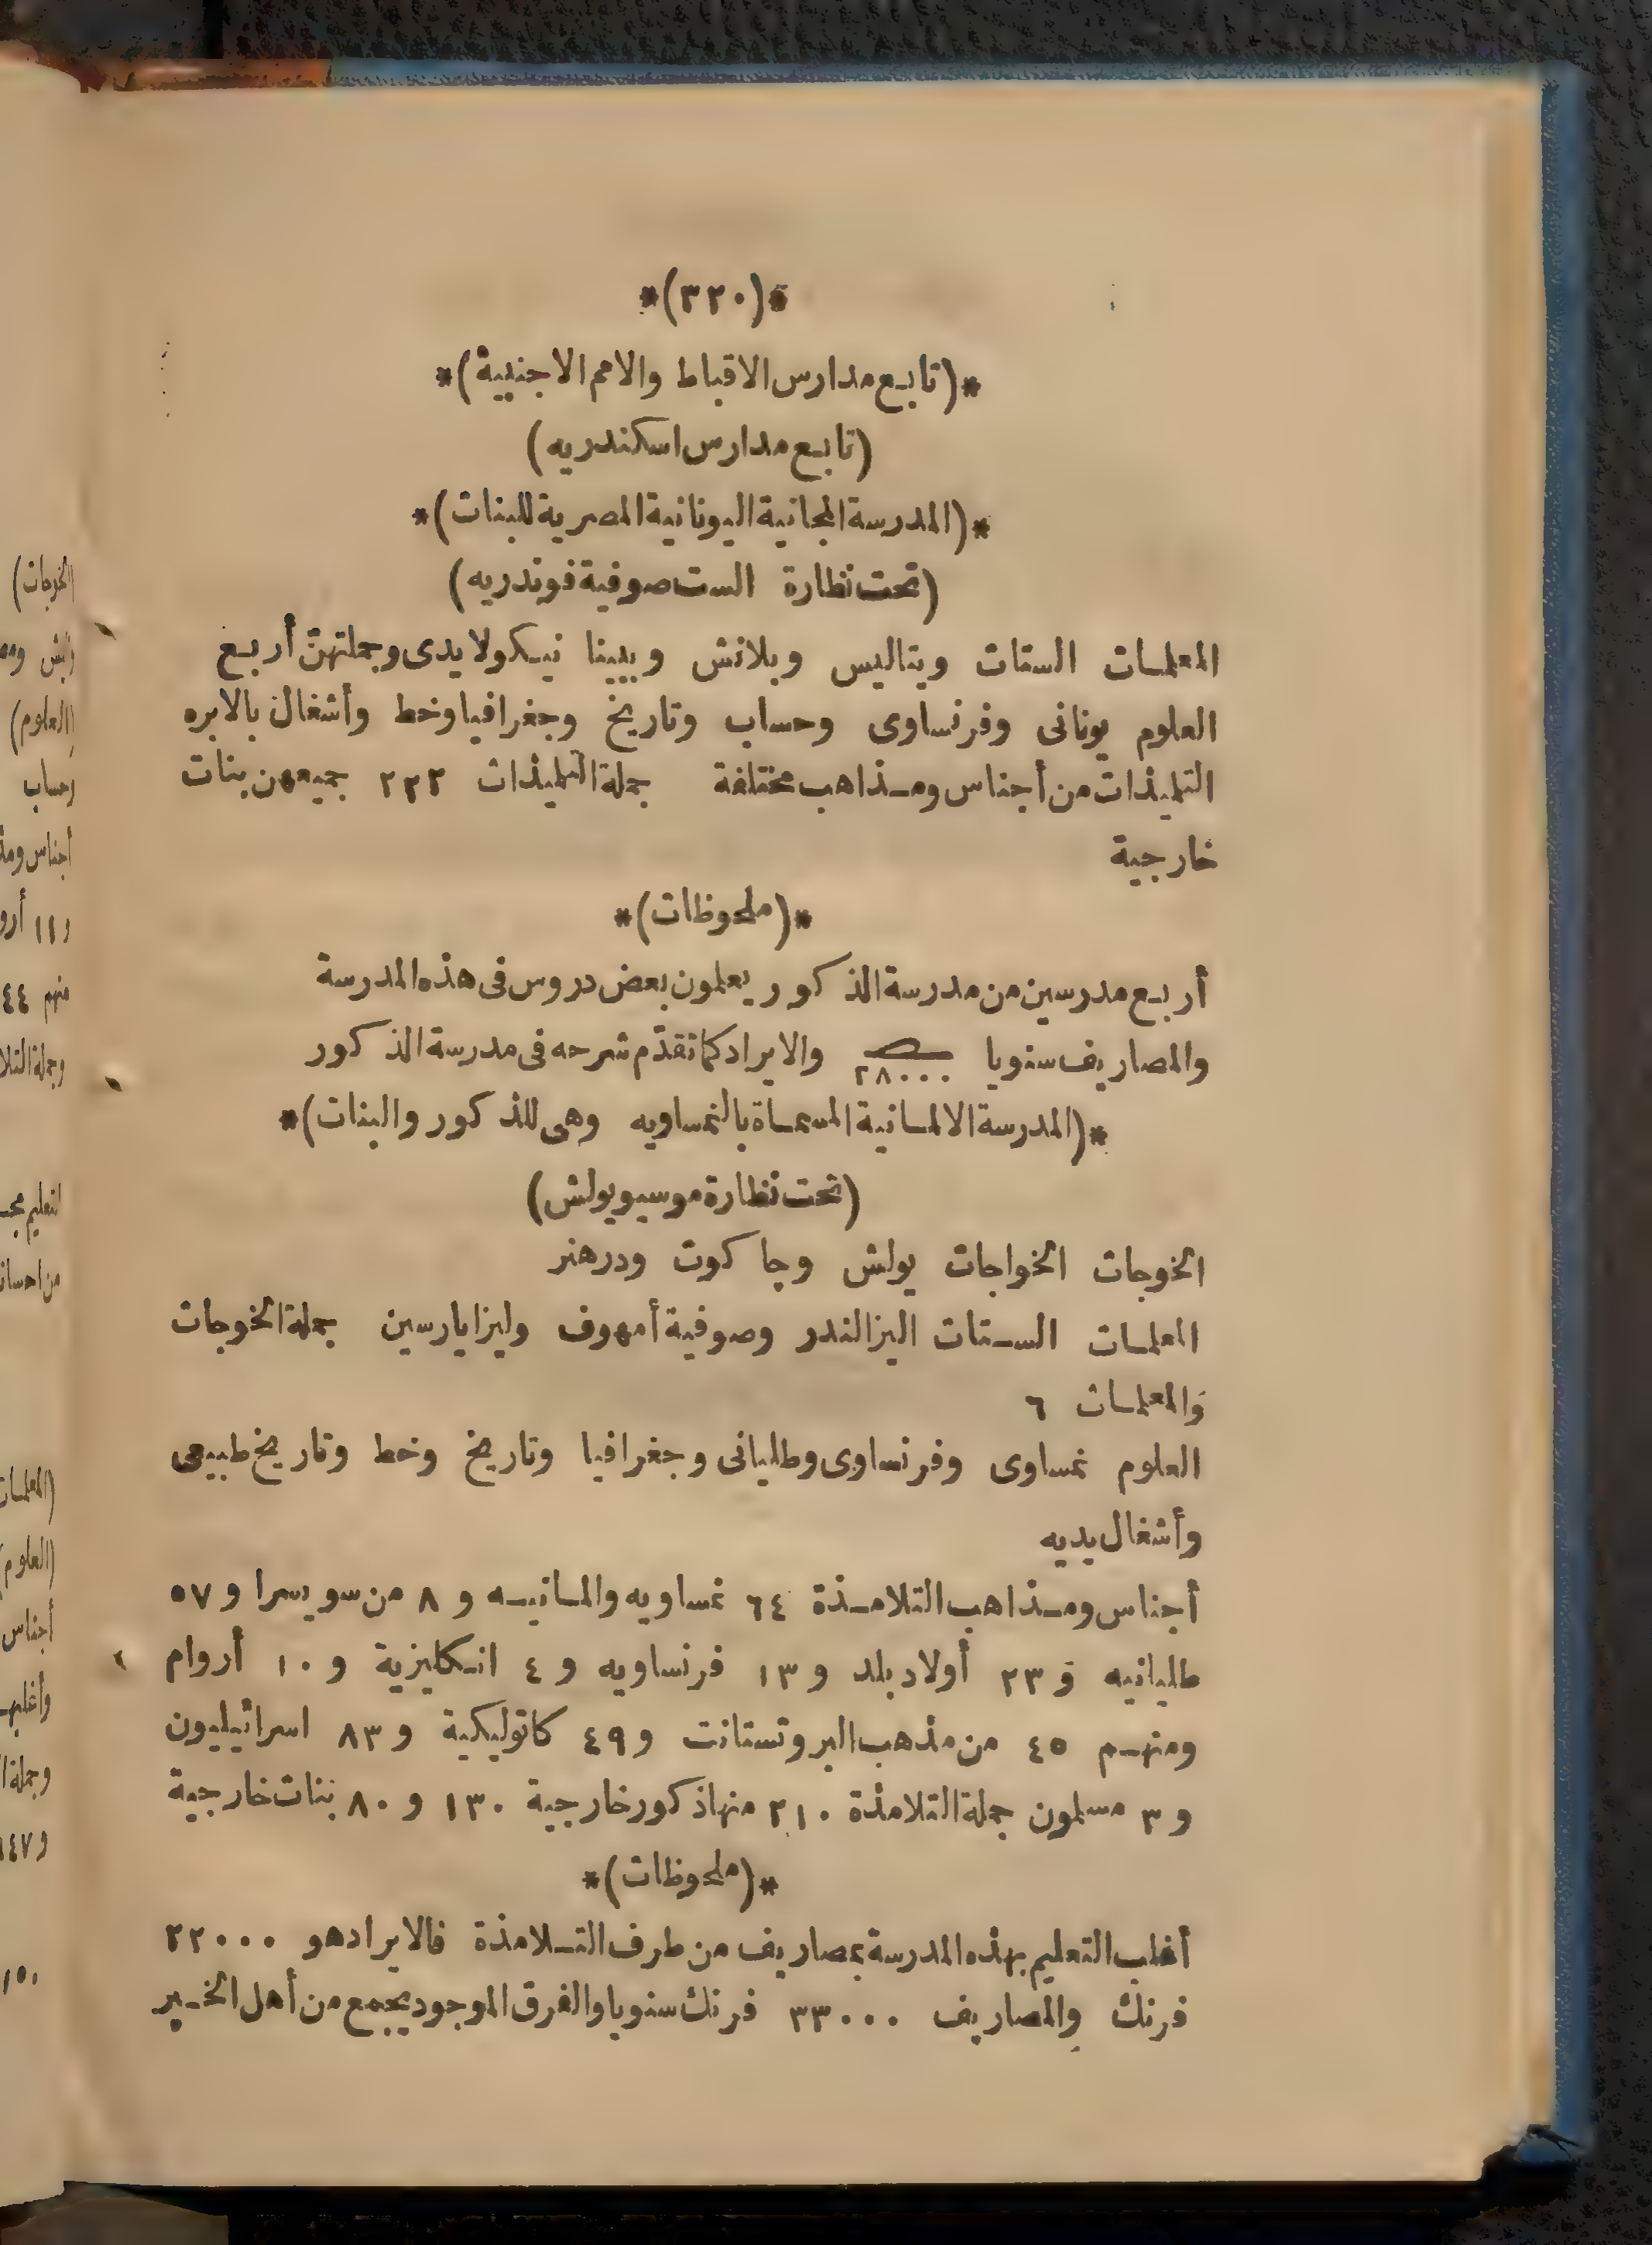 *(٣٢٠)*
*(تابع مدارس الاقباط والامم الاجنبية)*
(تابع مدارس اسكندريه)
*(المدرسة المجانية اليونانية المصرية للبنات)*
(تحت نظارة الست صوفية فوندريه)
المعلمات الستات ويتاليس وبلانش وبيينا نيكولايدى وجملتهنّ أربع
العلوم يونانى وفرنساوى وحساب وتاريخ وجغرافيا وخط وأشغال بالابره
التلميذات من أجناس ومذاهب مختلفة جملة التلميذات ٢٢٢ جميعهن بنات
خارجية
*(ملحوظات)*
أربع مدرسين من مدرسة الذكور يعلمون بعض دروس فى هذه المدرسة
والمصاريف سنويا ٢٨٠٠٠ والايراد كما تقدّم شرحه فى مدرسة الذكور
*(المدرسة الالمانية المسماة بالنمساويه وهى للذكور والبنات)*
(تحت نظارة موسيو يولش)
الخوجات الخواجات يولش وجاكوت ودرهنر
المعلمات الستات اليزالندر وصوفية أمهوف وليزا يارسين جملة الخوجات
والمعلمات ٦
العلوم نمساوى وفرنساوى وطليانى وجغرافيا وتاريخ وخط وتاريخ طبيعى
وأشغال يديه
أجناس ومذاهب التلامذة ٦٤ نمساويه والمانيه و ٨ من سويسرا و ٥٧
طليانيه و ٢٣ أولاد بلد و ١٣ فرنساويه و ٤ انكليزية و ١٠ أروام
ومنهم ٤٥ من مذهب البروتستانت و ٤٩ كاتوليكية و ٨٣ اسرائيليون
و ٣ مسلمون جملة التلامذة ٢١٠ منها ذكور خارجية ١٣٠ و ٨٠ بنات خارجية
*(ملحوظات)*
أغلب التعليم بهذه المدرسة بمصاريف من طرف التلامذة فالايراد هو ٢٢٠٠٠
فرنك والمصاريف ٣٣٠٠٠ فرنك سنويا والفرق الموجود يجمع من أهل الخير